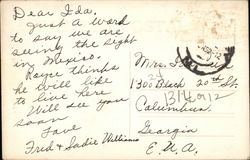 Dear Ida.
Just a word
to say we are
seeing the sights
in Mexico.
Royce thinks
he will like
to live here
Will see you
soon
Love
Fred & Sadie Williams
Mrs. I.
1300 Block 20th St.
1314
Columbus
Georgia
E. U. A.